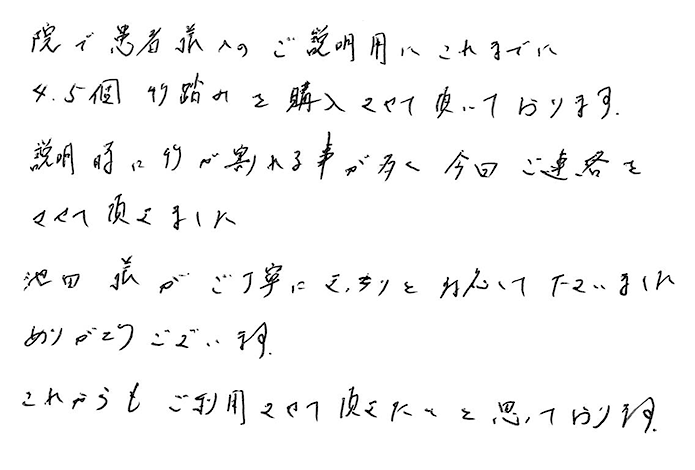 院で患者様へのご説明用にこれまでに
4.5個竹踏みを購入させて頂いております。
説明時に竹が割れる事が多く今回ご連絡を
させて頂きました
池田様がご丁寧にきっちりと対応して下さいました
ありがとうございます。
これからもご利用させて頂きたいと思っております。